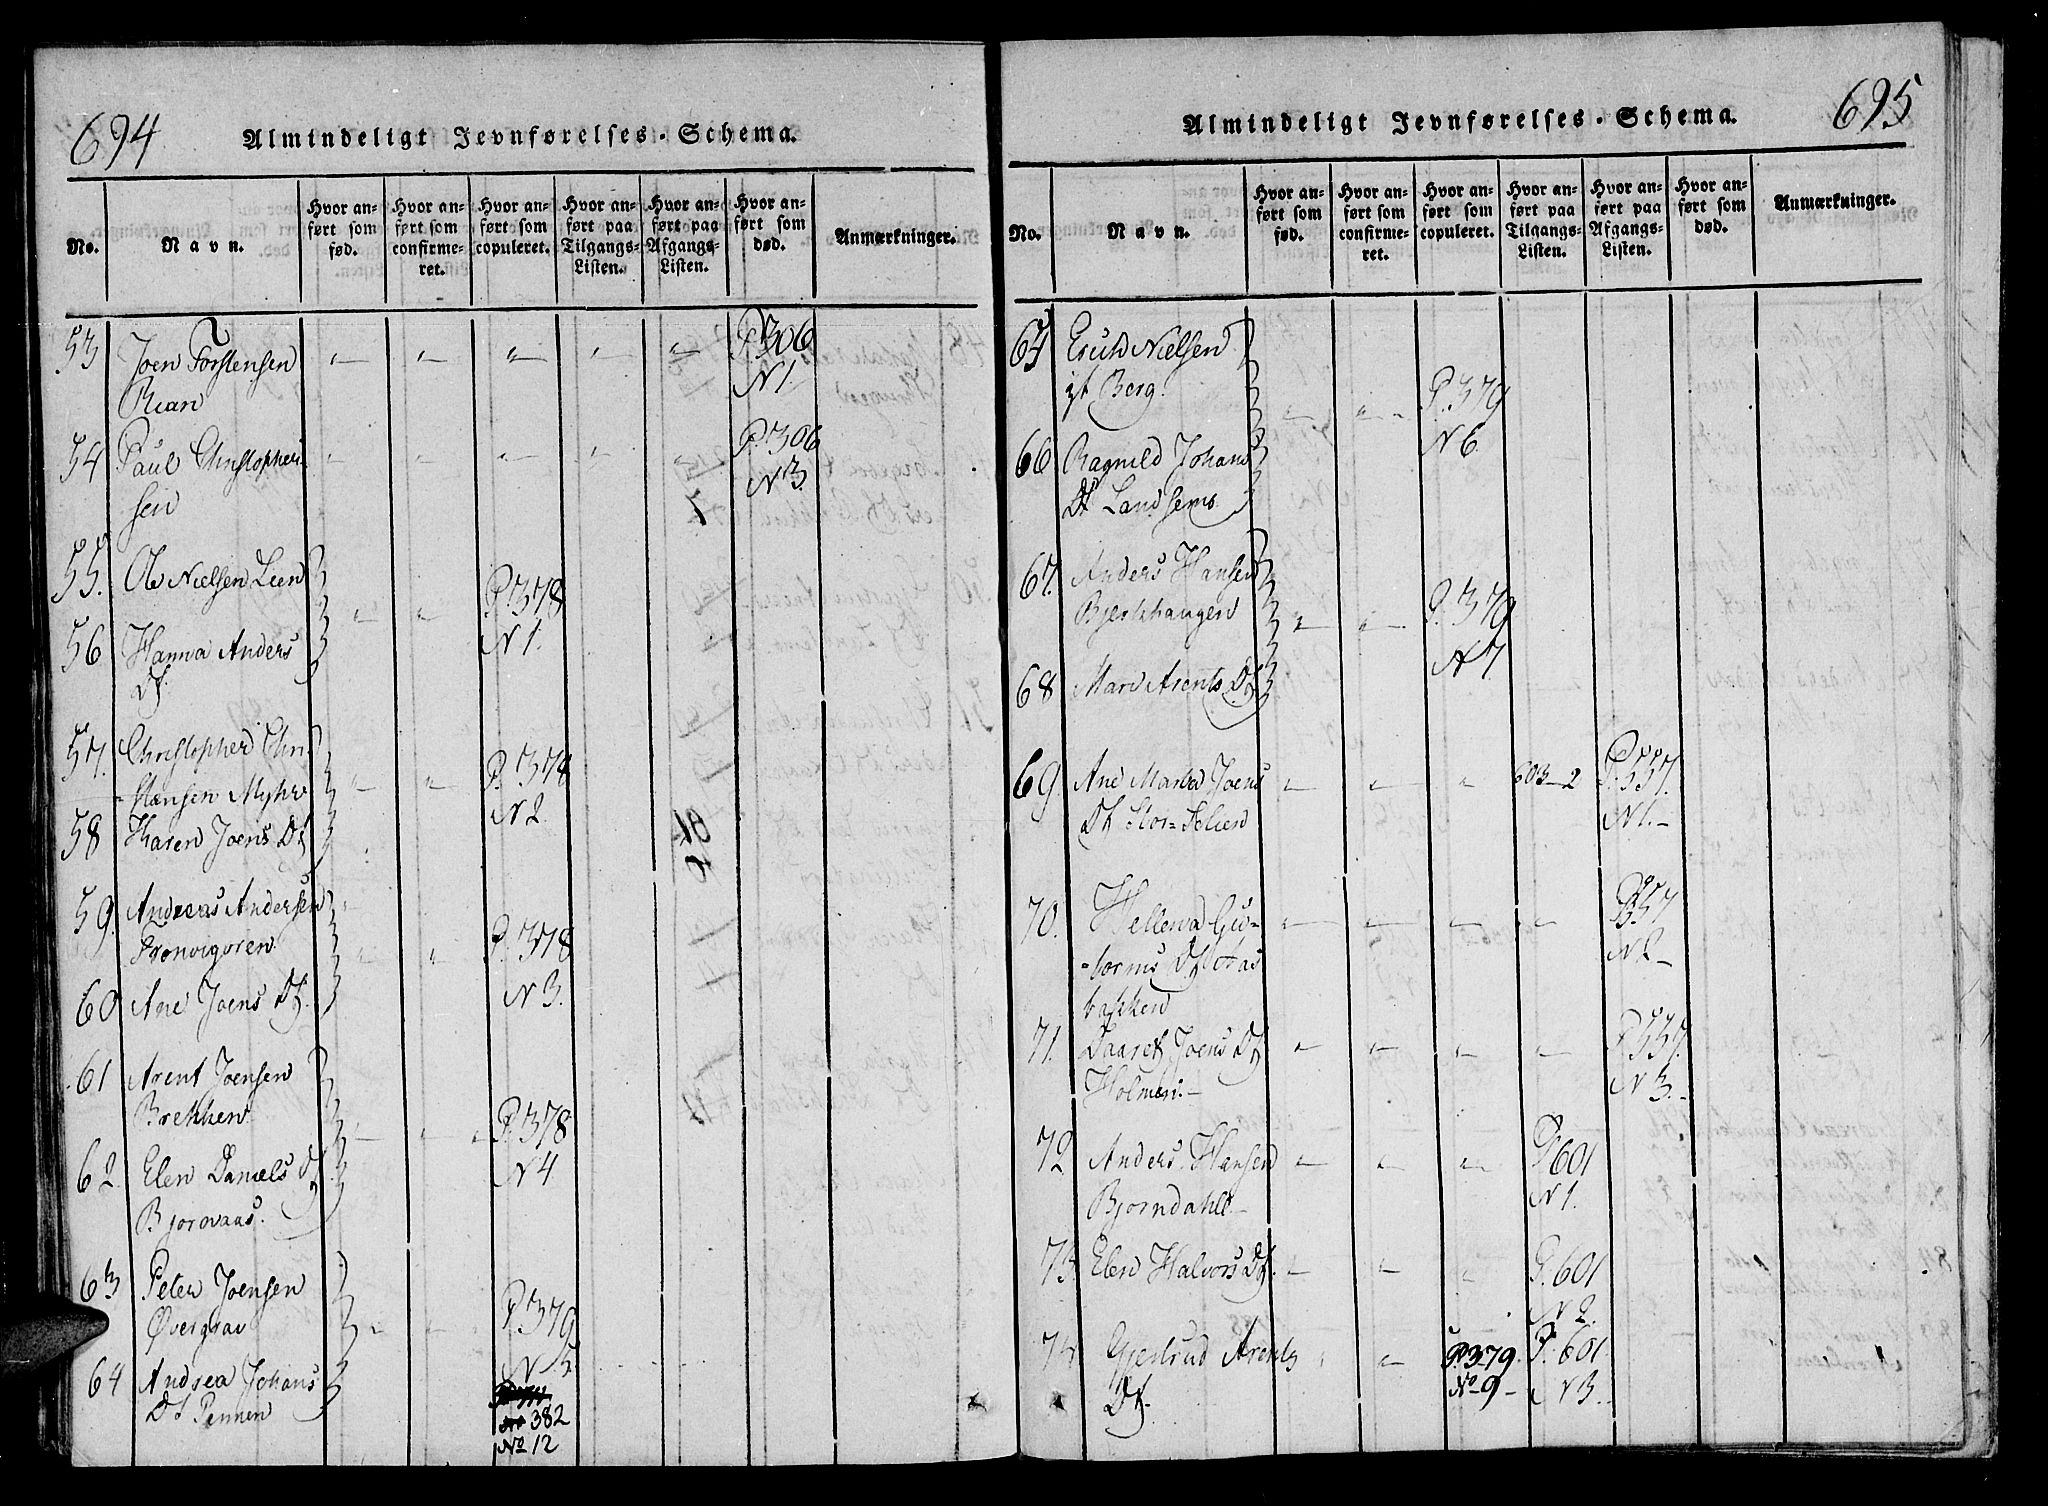 694
Almindeligt Jevnførelses-Schema.
No.
Navn.
Hvor anført som fød.
Hvor anført som confirmeret.
Hvor anført som copuleret.
Hvor anført paa Tilgangs-Listen.
Hvor anført paa Afgangs-Listen.
Hvor anført som død.
Anmærkninger.
53 Joen Torstensen P. 306
Rian N 1.
54 Paul Christopher- P. 306
sen N 3.
55. Ole Nielsen Lien P. 378
56 Hanna Anders N 1.
Dt.
57. Christopher Chri-
stensen Myhr P. 378
58 Karen Joens Dt N 2.
59. Andreas Andersen
Tronvigoren P. 378
60 Ane Joens Dt. N 3.
61 Arent Joensen
Brekken P. 378
62. Elen Daniels Dt N 4
Bjoraas.
63 Peter Joensen P. 379
Øvergrav N 5.
64 Andrea Johans
Dt Pennen 382
No 12
695
Almindeligt Jevnførelses-Schema.
No.
Navn.
Hvor anført som fød.
Hvor anført som confirmeret.
Hvor anført som copuleret.
Hvor anført paa Tilgangs-Listen.
Hvor anført paa Afgangs-Listen.
Hvor anført som død.
Anmærkninger.
65 Erich Nielsen
Berg. P. 379
66 Ragnild Johans N 6.
Dt Landsems
67. Anders Hansen
Bjerkhaugen P. 379
68 Mari Arents Dt N 7
69 Ane Marta Joens 603-2 P. 557.
Dt Stor-Selien N 1.-
70. Hellena Gu- P. 557
torms Dt Aas N 2-
bakken
71. Baaret Joens Dt P 557.
Holmen.- N 3.-
72 Anders Hansen P 601
Bjorndahl- N 1.
73. Elen Halvors Dt. P. 601
N 2.
74 Gjertrud Arents P. 379. P. 601
Dt. No 9- N 3.